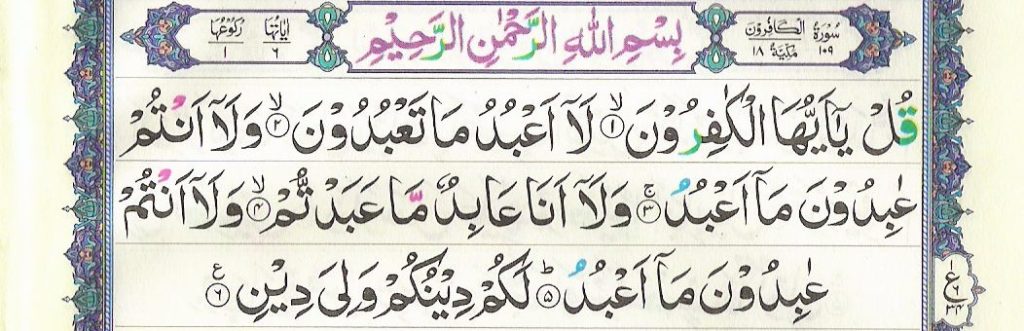 سُوْرَةُ الْكَافِرُوْنَ
١٠٩ مَكِّيَّةٌ ١٨
بِسْمِ اللّٰهِ الرَّحْمٰنِ الرَّحِيْمِ
اٰيَاتُهَا ٦ رُكُوْعُهَا ١
قُلْ يٰۤاَيُّهَا الْكٰفِرُوْنَۙ‏ ١ لَاۤ اَعْبُدُ مَا تَعْبُدُوْنَۙ‏ ٢ وَلَاۤ اَنْتُمْ
عٰبِدُوْنَ مَاۤ اَعْبُدُۚ‏ ٣ وَلَاۤ اَنَا عَابِدٌ مَّا عَبَدْتُّمْۙ‏ ٤ وَلَاۤ اَنْتُمْ
عٰبِدُوْنَ مَاۤ اَعْبُدُؕ‏ ٥ لَكُمْ دِيْنُكُمْ وَلِىَ دِيْنِ ٦ ع
ع
١
٦
٣٤